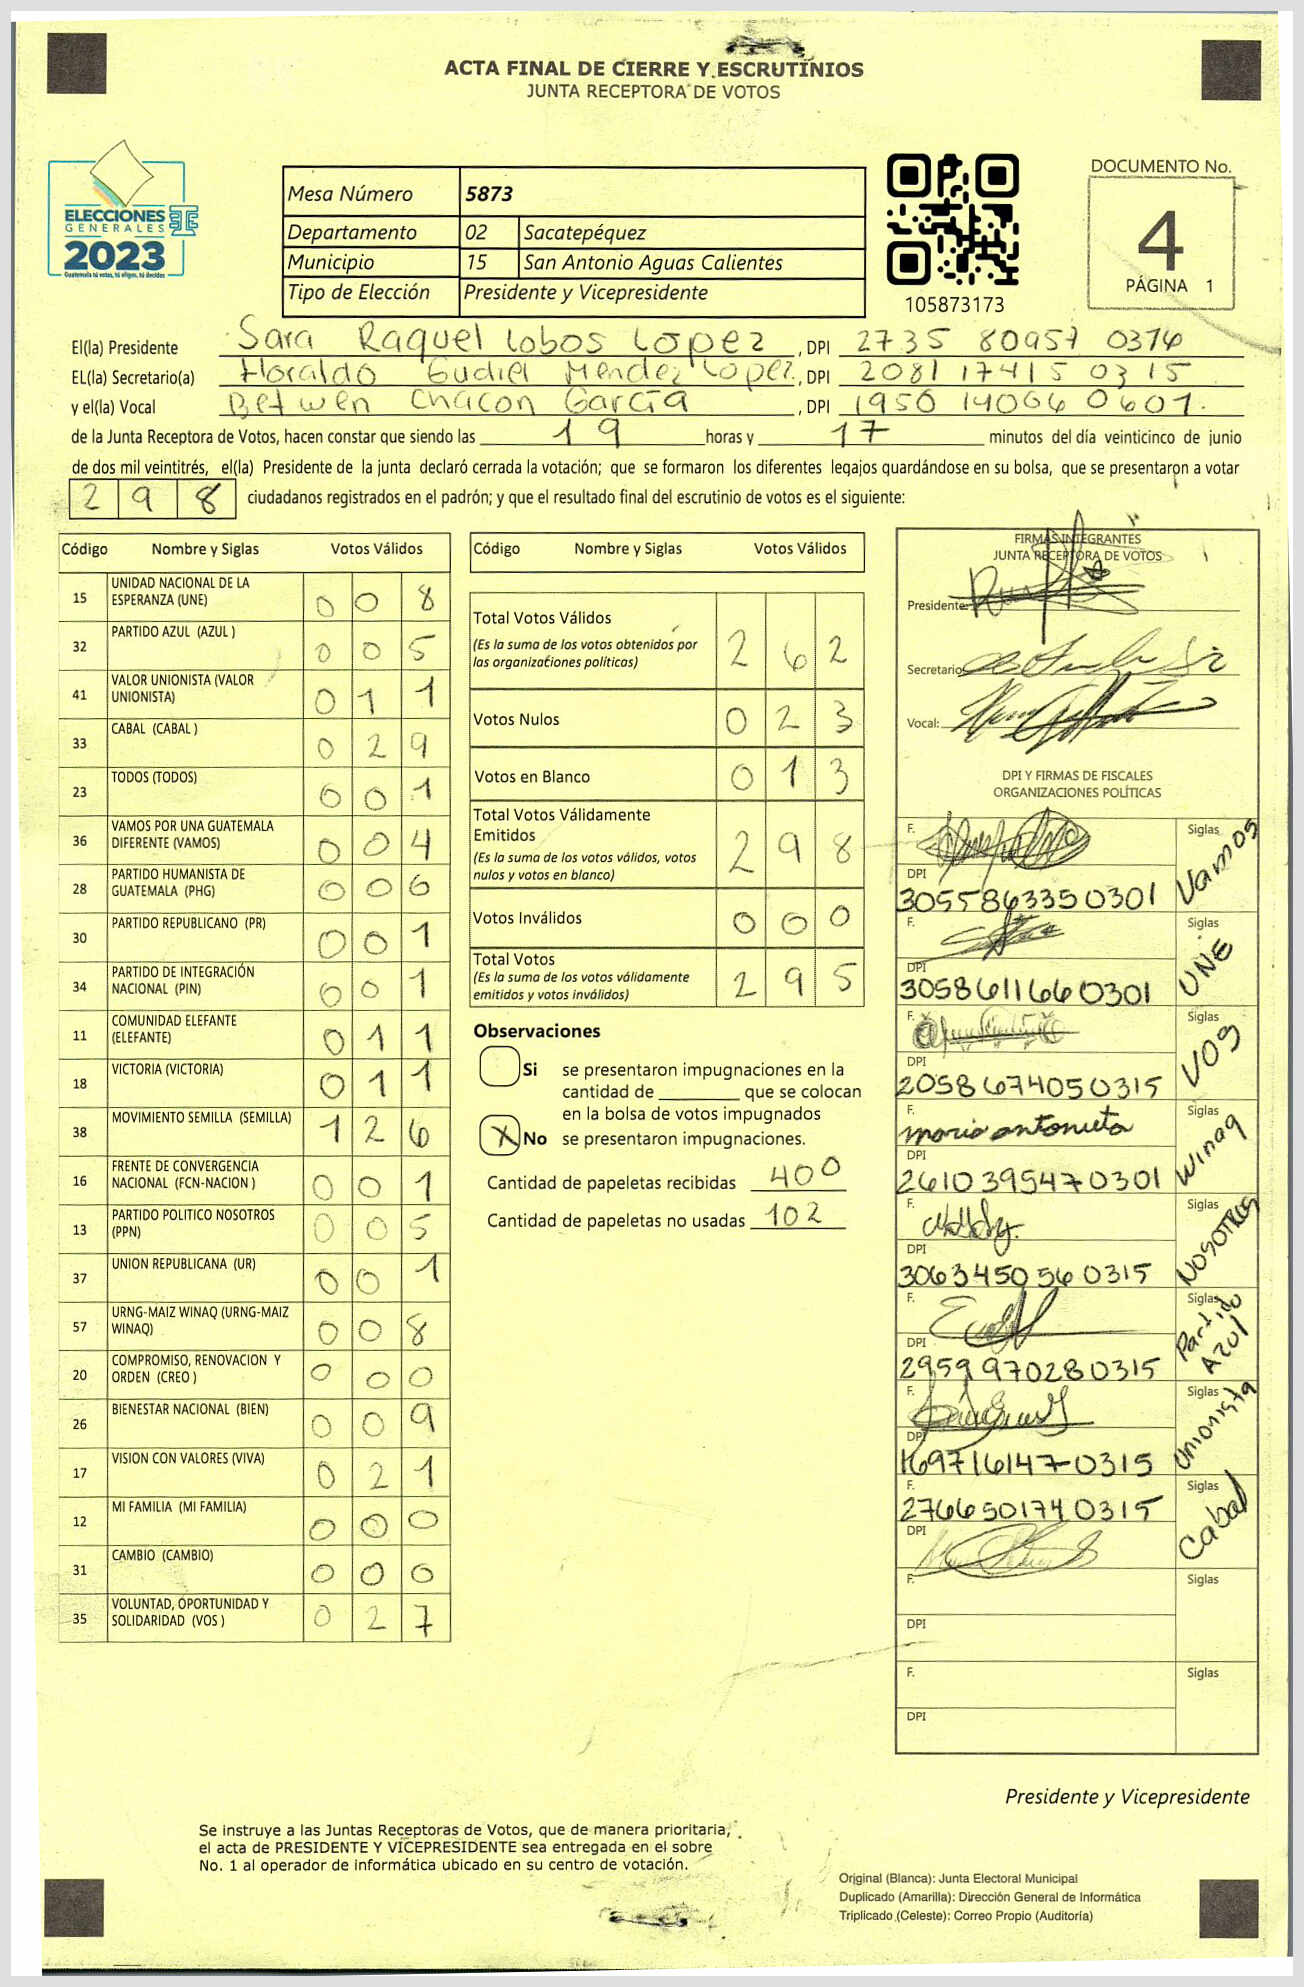 ACTA FINAL DE CIERRE Y ESCRUTINIOS
JUNTA RECEPTORA DE VOTOS
ELECCIONES
GENERALES
2023
Guatemala tú votas, tú eliges, tú decides
Mesa Número 5873
Departamento 02 Sacatepéquez
Municipio 15 San Antonio Aguas Calientes
Tipo de Elección Presidente y Vicepresidente
105873173
DOCUMENTO No.
4
PÁGINA 1
El(la) Presidente Sara Raquel Lobos Lopez, DPI 2735 80957 0376
EL(la) Secretario(a) Horaldo Gudiel Mendez Lopez, DPI 2081 17415 0315
y el(la) Vocal Betwen Chacon García, DPI 1950 14006 0601.
de la Junta Receptora de Votos, hacen constar que siendo las 19 horas y 17 minutos del día veinticinco de junio
de dos mil veintitrés, el(la) Presidente de la junta declaró cerrada la votación; que se formaron los diferentes legajos guardándose en su bolsa, que se presentaron a votar
298 ciudadanos registrados en el padrón; y que el resultado final del escrutinio de votos es el siguiente:
Código Nombre y Siglas Votos Válidos
15 UNIDAD NACIONAL DE LA ESPERANZA (UNE) 0 0 8
32 PARTIDO AZUL (AZUL ) 0 0 5
41 VALOR UNIONISTA (VALOR UNIONISTA) 0 1 1
33 CABAL (CABAL ) 0 2 9
23 TODOS (TODOS) 0 0 1
36 VAMOS POR UNA GUATEMALA DIFERENTE (VAMOS) 0 0 4
28 PARTIDO HUMANISTA DE GUATEMALA (PHG) 0 0 6
30 PARTIDO REPUBLICANO (PR) 0 0 1
34 PARTIDO DE INTEGRACIÓN NACIONAL (PIN) 0 0 1
11 COMUNIDAD ELEFANTE (ELEFANTE) 0 1 1
18 VICTORIA (VICTORIA) 0 1 1
38 MOVIMIENTO SEMILLA (SEMILLA) 1 2 6
16 FRENTE DE CONVERGENCIA NACIONAL (FCN-NACION ) 0 0 1
13 PARTIDO POLITICO NOSOTROS (PPN) 0 0 5
37 UNION REPUBLICANA (UR) 0 0 1
57 URNG-MAIZ WINAQ (URNG-MAIZ WINAQ) 0 0 8
20 COMPROMISO, RENOVACION Y ORDEN (CREO ) 0 0 0
26 BIENESTAR NACIONAL (BIEN) 0 0 9
17 VISION CON VALORES (VIVA) 0 2 1
12 MI FAMILIA (MI FAMILIA) 0 0 0
31 CAMBIO (CAMBIO) 0 0 0
35 VOLUNTAD, OPORTUNIDAD Y SOLIDARIDAD (VOS ) 0 2 7
Código Nombre y Siglas Votos Válidos
Total Votos Válidos 2 6 2
(Es la suma de los votos obtenidos por
las organizaciones políticas)
Votos Nulos 0 2 3
Votos en Blanco 0 1 3
Total Votos Válidamente
Emitidos 2 9 8
(Es la suma de los votos válidos, votos
nulos y votos en blanco)
Votos Inválidos 0 0 0
Total Votos 2 9 5
(Es la suma de los votos válidamente
emitidos y votos inválidos)
Observaciones
Si se presentaron impugnaciones en la
cantidad de ________ que se colocan
en la bolsa de votos impugnados
X No se presentaron impugnaciones.
Cantidad de papeletas recibidas 400
Cantidad de papeletas no usadas 102
FIRMAS INTEGRANTES
JUNTA RECEPTORA DE VOTOS
Presidente:
Secretario
Vocal:
DPI Y FIRMAS DE FISCALES
ORGANIZACIONES POLÍTICAS
F. Siglas Vamos
DPI
305586335 0301
F. Siglas UNE
DPI
305861166 0301
F. Siglas VOS
DPI
205867405 0315
F. maria antonieta Siglas Winaq
DPI
2610 39547 0301
F. Siglas NOSOTROS
DPI
3063450560315
F. Siglas Partido Azul
DPI
2959 97028 0315
F. Siglas Unionista
DPI
169716147-0315
F. Siglas Cabal
2766501740315
DPI
F. Siglas
DPI
F. Siglas
DPI
Presidente y Vicepresidente
Se instruye a las Juntas Receptoras de Votos, que de manera prioritaria,
el acta de PRESIDENTE Y VICEPRESIDENTE sea entregada en el sobre
No. 1 al operador de informática ubicado en su centro de votación.
Original (Blanca): Junta Electoral Municipal
Duplicado (Amarilla): Dirección General de Informática
Triplicado (Celeste): Correo Propio (Auditoría)